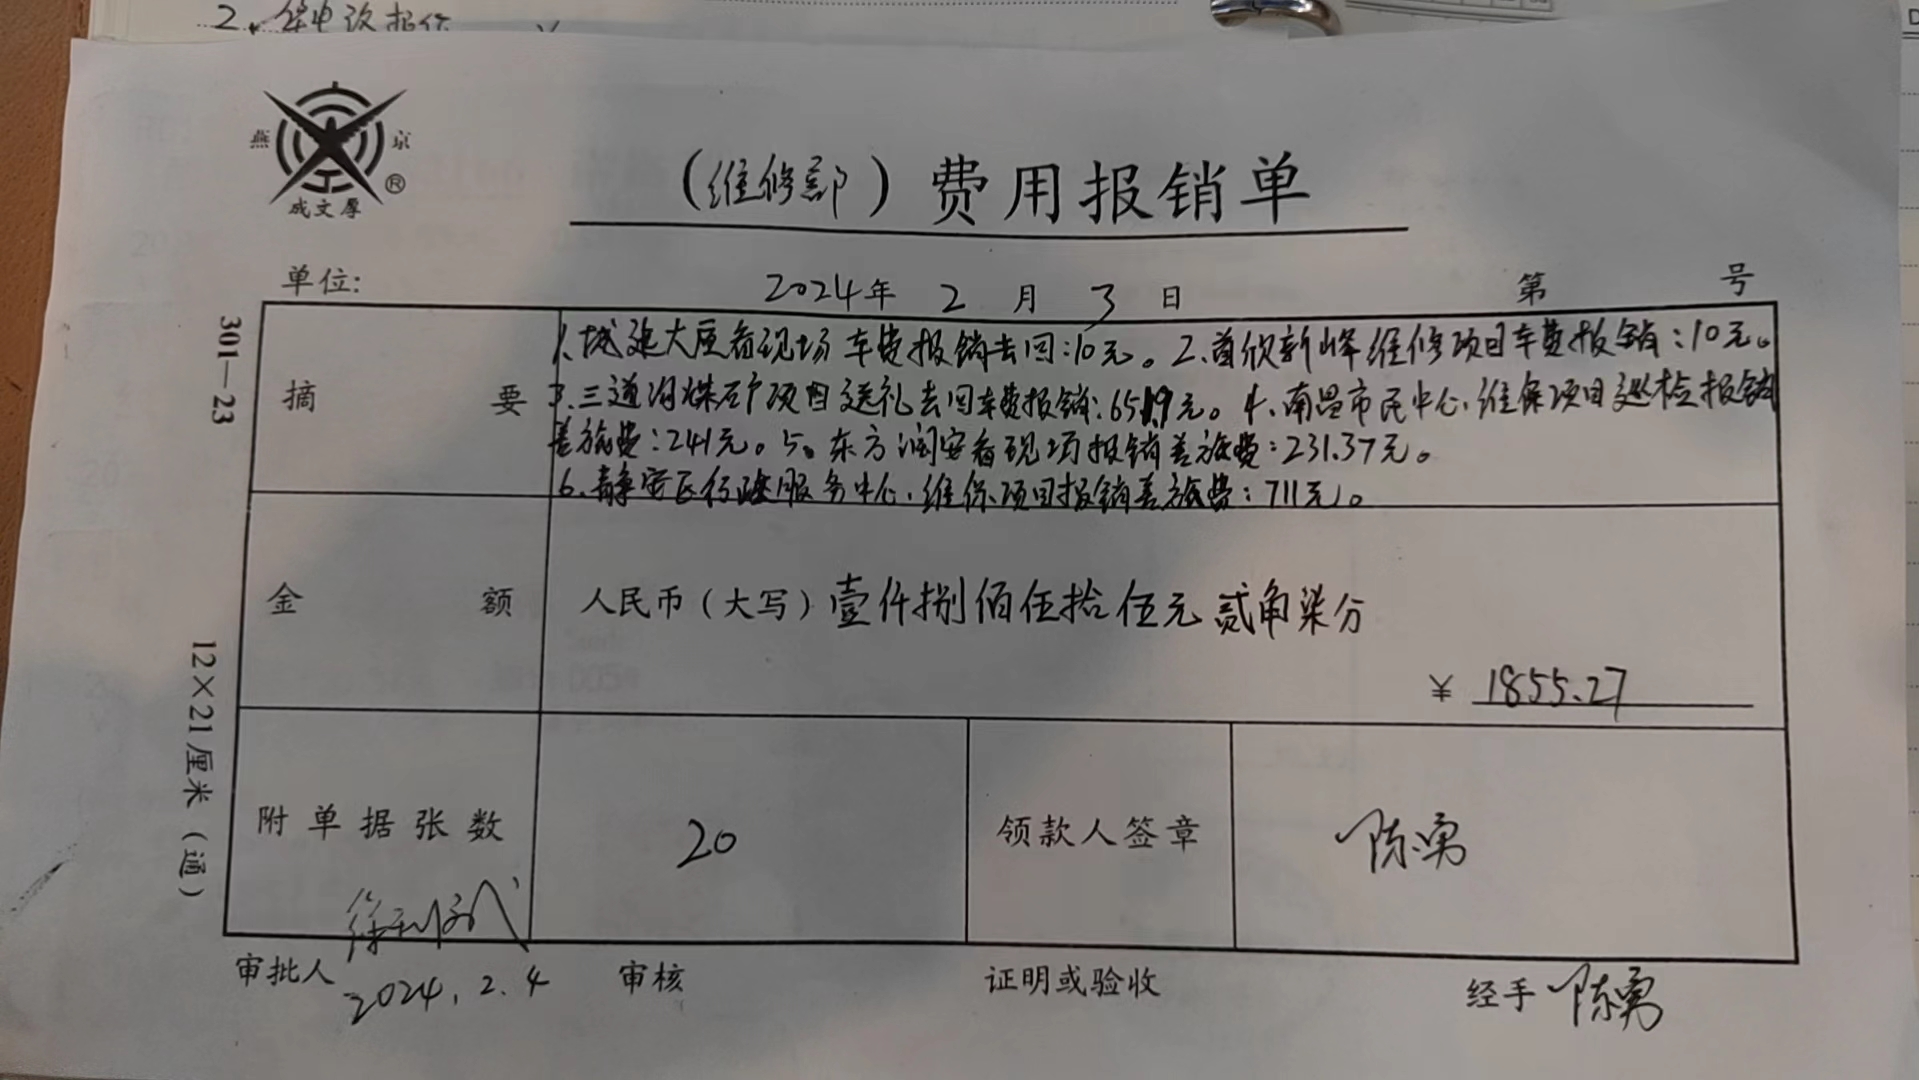 2、华电改报价
燕 京
成文厚
(维修部)费用报销单
单位: 2024年 2 月 3 日 第 号
301—23
12×21厘米(通)
摘 要
1、城建大厦看现场车费报销去回:10元。2、首欣新峰维修项目车费报销:10元。
3、三道沟煤矿项目送礼去回车费报销:651.9元。4、南昌市民中心维保项目巡检报销
差旅费:241元。5。东方润安看现场报销差旅费:231.37元。
6、静安区行政服务中心维保项目报销差旅费:711元。
金 额 人民币(大写)壹仟捌佰伍拾伍元贰角柒分
¥ 1855.27
附单据张数 20 领款人签章 陈勇
审批人 2024.2.4 审核 证明或验收 经手 陈勇